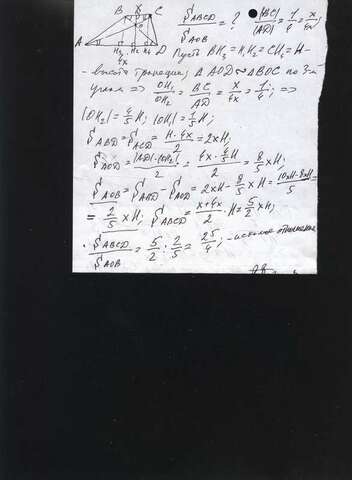 B K C
A H₃ H₂ H₄ D
4x
S_ABCD / S_AOB = ? |BC| / |AD| = 1/4 = x/4x;
Пусть BH₃ = H₁H₂ = CH₄ = H -
- высота трапеции, Δ AOD ~ ΔBOC по 3-м
углам => OH₁/OH₂ = BC/AD = x/4x = 1/4; =>
|OH₂| = 4/5 H; |OH₁| = 1/5 H;
S_ABD = S_ACD = H·4x / 2 = 2xH;
S_AOD = |AD|·|OH₂| / 2 = 4x · 4/5 H / 2 = 8/5 xH;
S_AOB = S_ABD - S_AOD = 2xH - 8/5 xH = 10xH - 8xH / 5 =
= 2/5 xH; S_ABCD = x+4x / 2 · H = 5/2 xH;
S_ABCD / S_AOB = 5/2 : 2/5 = 25/4; - искомое отношение